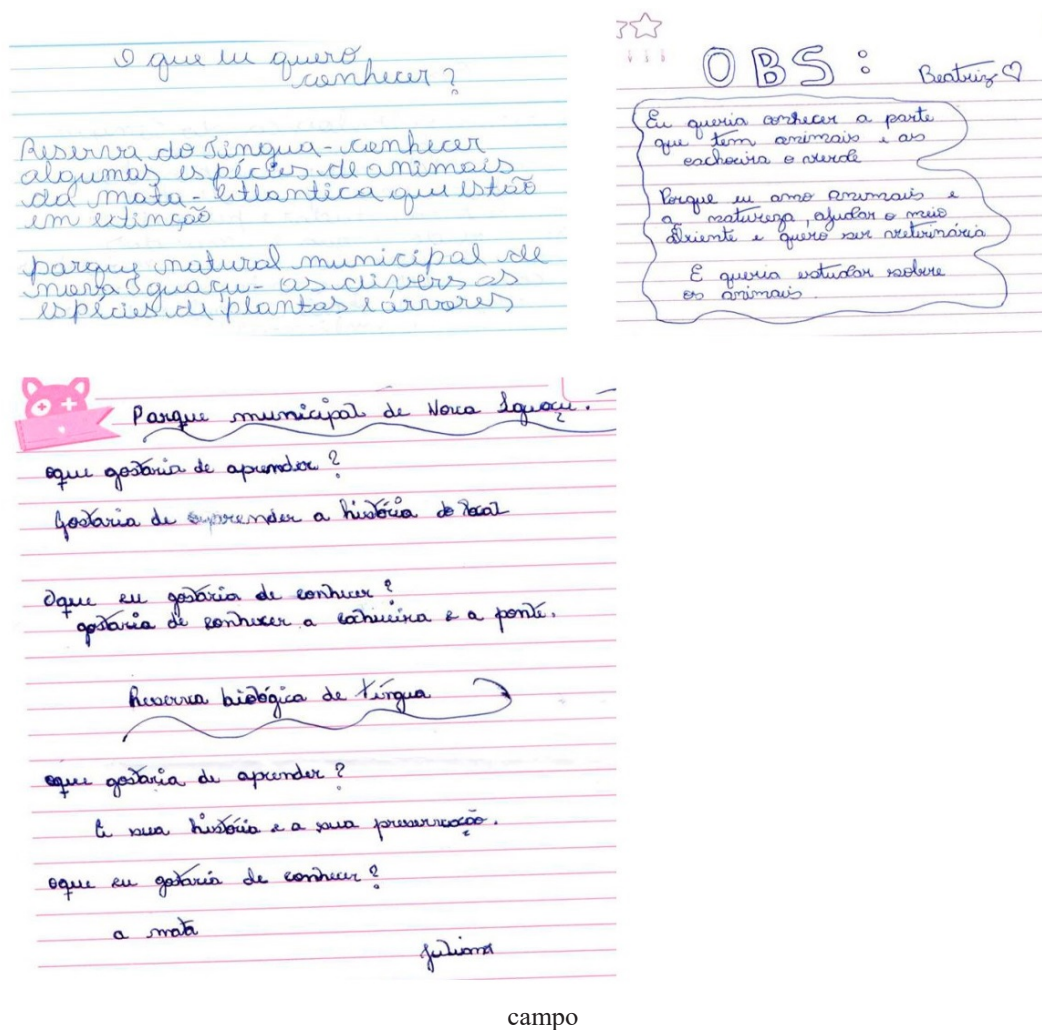 O que eu quero
conhecer?
Reserva do Tingua - conhecer
algumas espécies de animais
da mata - Atlantica que estão
em extinção
parque natural municipal de
nova Iguaçu - as divers as
espécies de plantas e árvores
OBS: Beatriz ♡
Eu queria conhecer a parte
que tem animais e as
cachoeira e verde
Porque eu amo animais e
a natureza, ajudar o meio
Abriente e quero ser veterinária
E queria estudar sobre
os animais.
Parque municipal de Nova Iguaçu.
oque gostaria de aprender?
Gostaria de aprender a história do local
Oque eu gostaria de conhecer?
gostaria de conhecer a cachueira e a ponte.
Reserva biológica de tingua
oque gostaria de aprender?
A sua história e a sua preservação.
oque eu gostaria de conhecer?
a mata
Juliana
campo